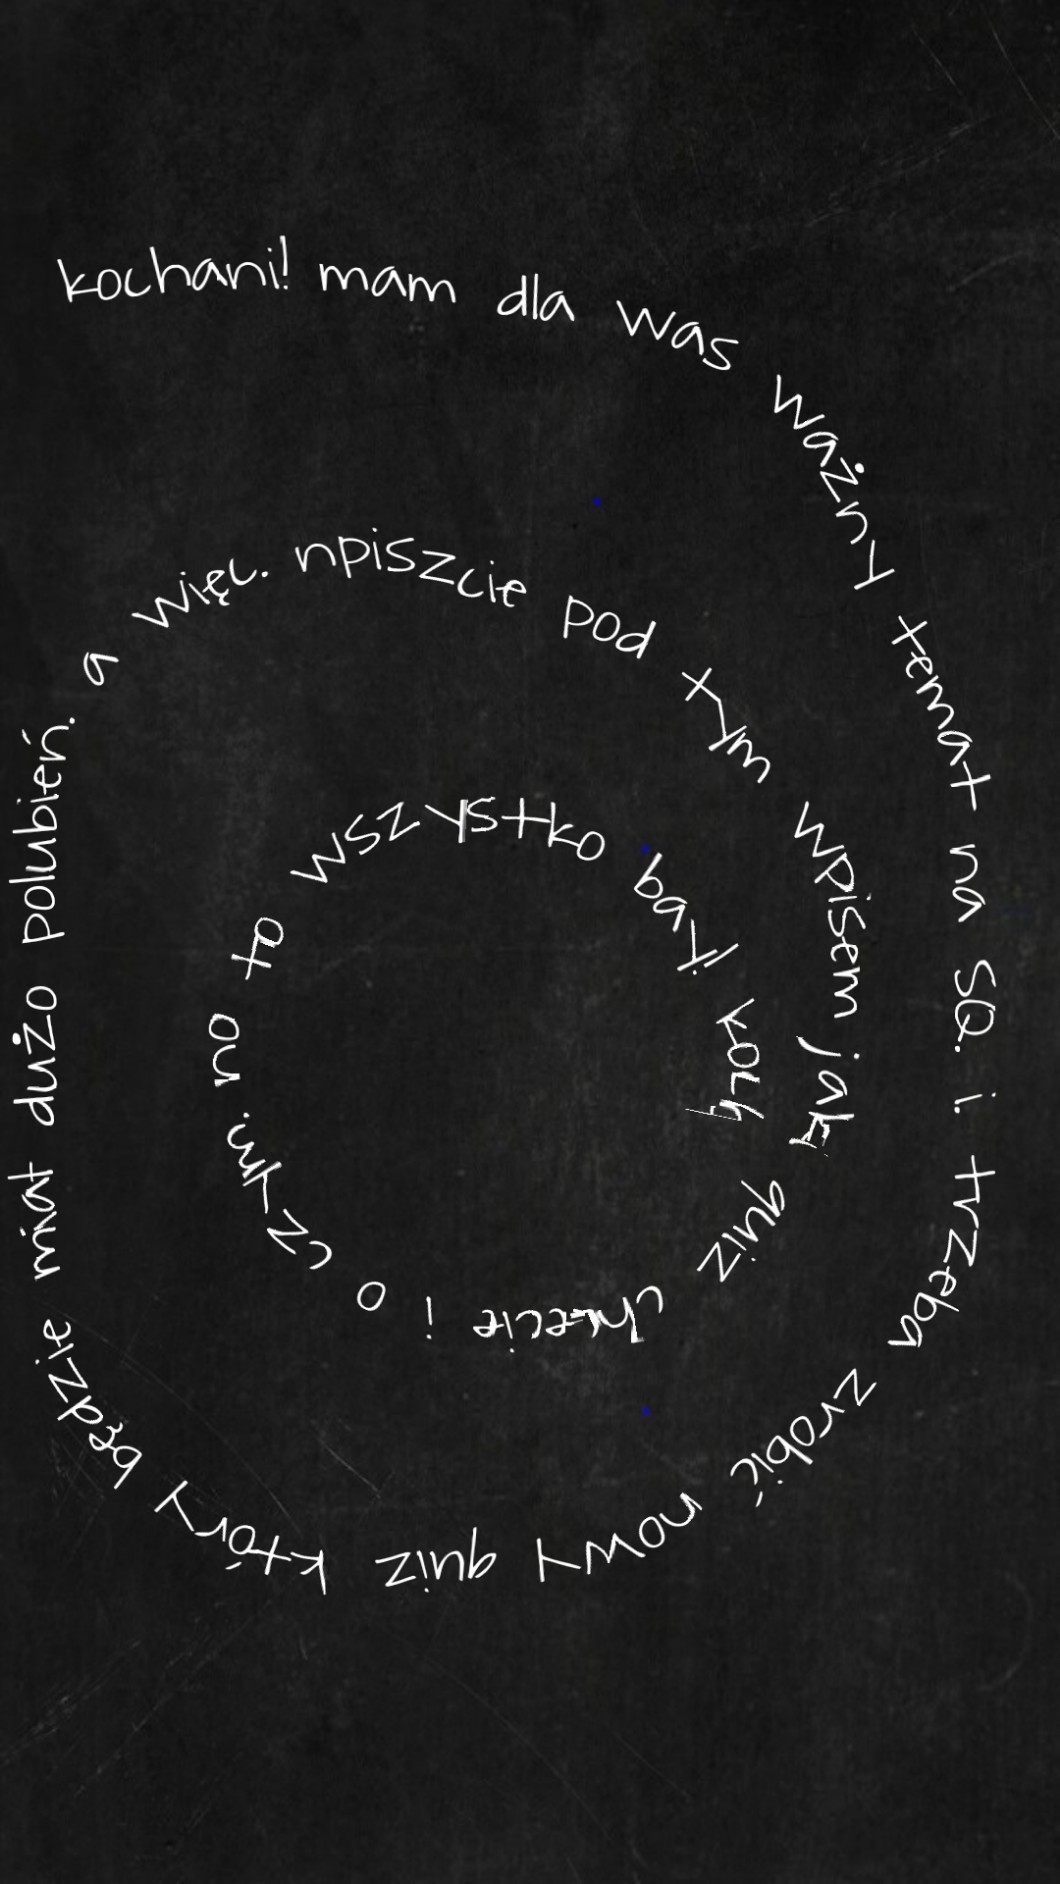 kochani! mam dla was ważny temat na SQ. i. trzeba zrobić nowy quiz który będzie miał dużo polubień. a więc. npiszcie pod tym wpisem jaki quiz chcecie i o czym. no to wszystko baj! koch